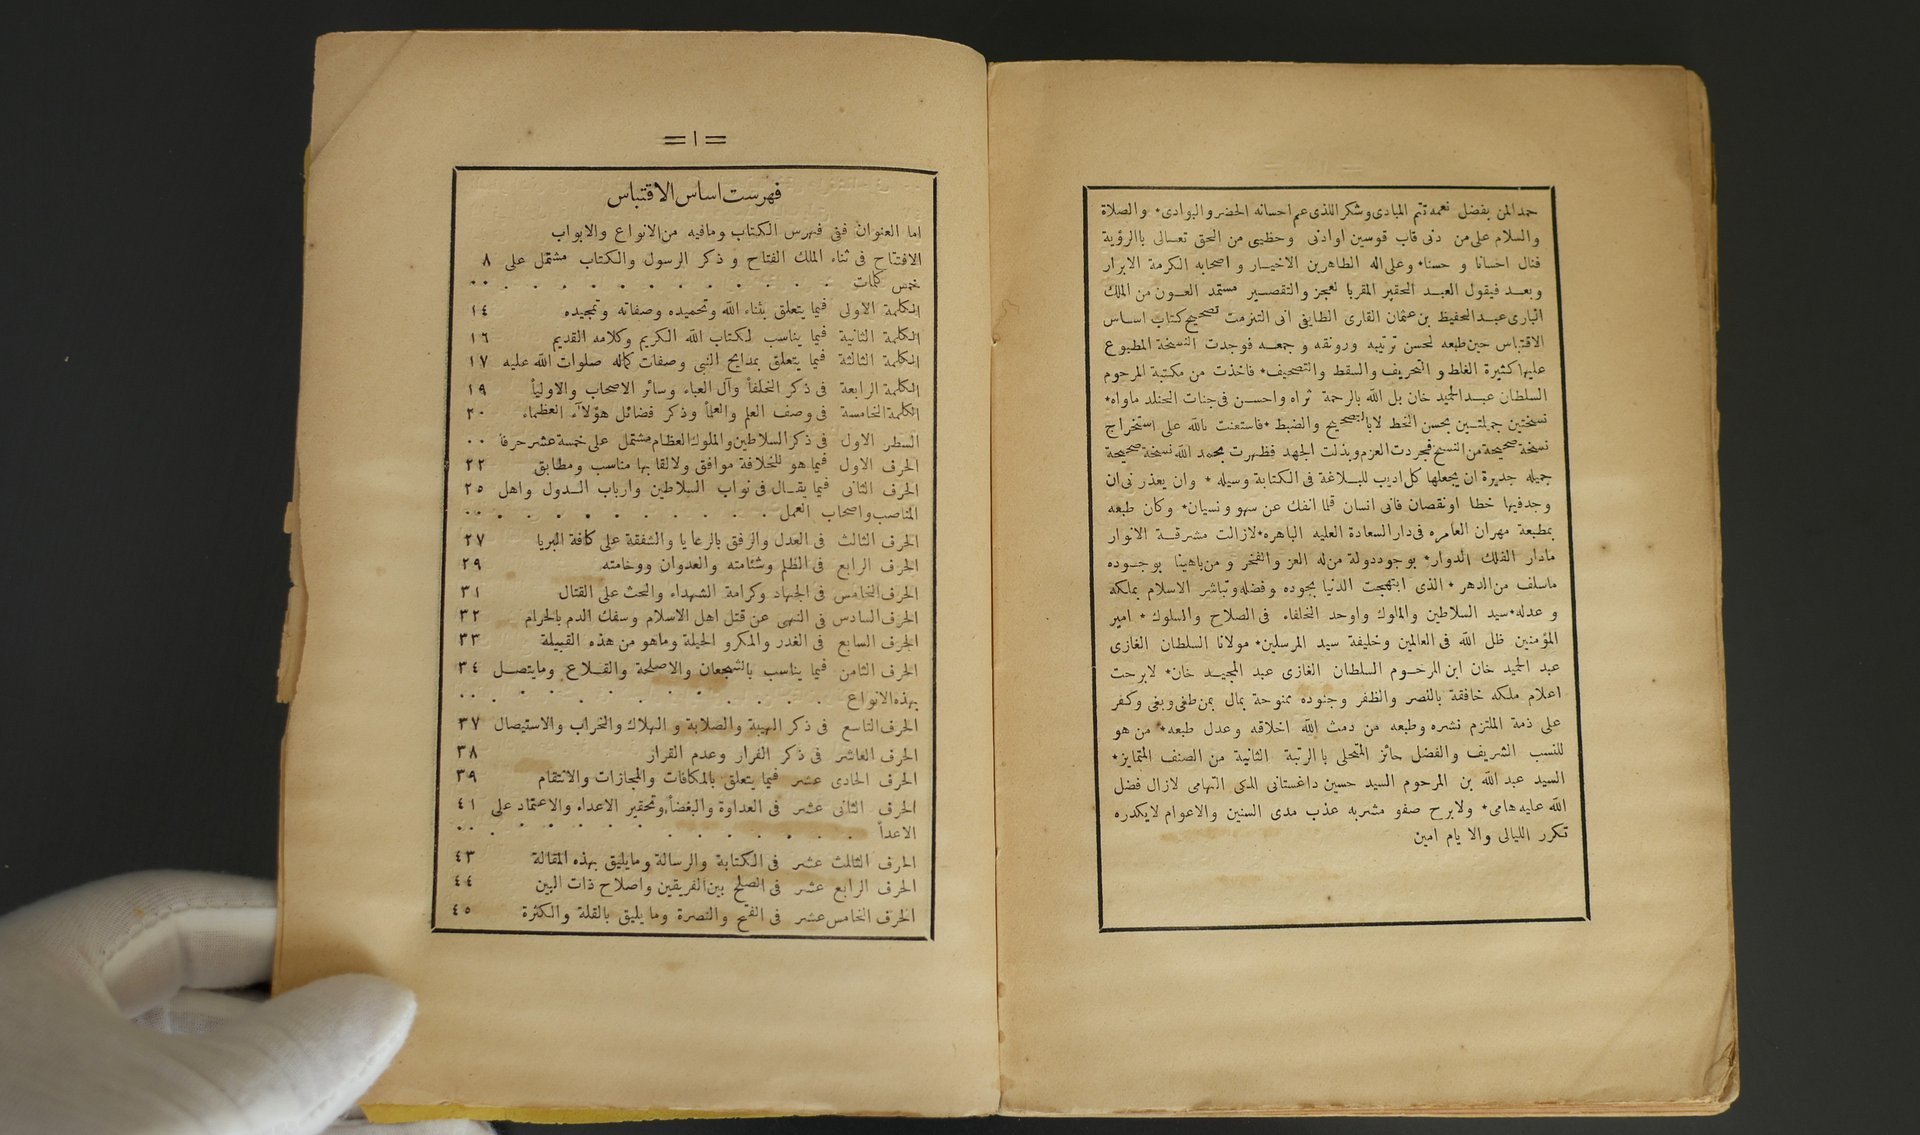 حمدا لمن بفضل نعمه تتم المبادى وشكر اللذى عم احسانه الحضر والبوادى* والصلاة
والسلام على من دنى قاب قوسين او ادنى وحظيى من الحق تعالى باالرؤية
فنال احسانا و حسنا* وعلى اله الطاهرين الاخيار و اصحابه الكرمة الابرار
وبعد فيقول العبد الحقير المقر بالعجز والتقصير مستمد العون من الملك
البارى عبد الحفيظ بن عثمان القارى الطايفى انى التزمت تصحيح كتاب اساس
الاقتباس حين طبعه لحسن ترتيبه ورونقه و جمعه فوجدت النسخة المطبوع
عليها كثيرة الغلط و التحريف والسقط والتصحيف* فاخذت من مكتبة المرحوم
السلطان عبد الحميد خان بل الله بالرحمة ثراه واحسن فى جنات الخلد ماواه*
نسختين جميلتين بحسن الخط لا بالتصحيح والضبط* فاستعنت بالله على استخراج
نسخة صحيحة من النسخ فجردت العزم وبذلت الجهد فظهرت بحمد الله نسخة صحيحة
جميله جديرة ان يجعلها كل اديب للبلاغة فى الكتابة وسيله * وان يعذرنى ان
وجد فيها خطا او نقصان فانى انسان قلما انفك عن سهو ونسيان* وكان طبعه
بمطبعة مهران العامره فى دار السعادة العليه الباهره* لازالت مشرقة الانوار
مادار الفلك الدوار* بوجود دولة من له العز والفخر و من باهينا بوجوده
ماسلف من الدهر* الذى ابتهجت الدنيا بجوده وفضله وتباشر الاسلام بملكه
و عدله* سيد السلاطين والملوك واوحد الخلفاء فى الصلاح والسلوك* امير
المؤمنين ظل الله فى العالمين وخليفة سيد المرسلين* مولانا السلطان الغازى
عبد الحميد خان ابن المرحوم السلطان الغازى عبد المجيد خان* لابرحت
اعلام ملكه خافقة بالنصر والظفر وجنوده ممنوحة بمال بمن طغى وبغى وكفر
على ذمة الملتزم نشره وطبعه من دمث الله اخلاقه وعدل طبعه* من هو
للنسب الشريف والفضل حائز المتحلى باالرتبة الثانية من الصنف المتمايز*
السيد عبد الله بن المرحوم السيد حسين داغستانى المكى التهامى لازال فضل
الله عليه هامى* ولابرح صفو مشربه عذب مدى السنين والاعوام لايكدره
تكرر الليالى والايام امين
= ١ =
فهرست اساس الاقتباس
اما العنوان ففى فهرس الكتاب ومافيه من الانواع والابواب
الافتتاح فى ثناء الملك الفتاح و ذكر الرسول والكتاب مشتمل على ٨
خمس كلمات ٠٠
الكلمة الاولى فيما يتعلق بثناء الله وتحميده وصفاته وتمجيده ١٤
الكلمة الثانية فيما يناسب لكتاب الله الكريم وكلامه القديم ١٦
الكلمة الثالثة فيما يتعلق بمدايح النبى وصفات كماله صلوات الله عليه ١٧
الكلمة الرابعة فى ذكر الخلفأ وآل العباء وسائر الاصحاب والاوليأ ١٩
الكلمة الخامسة فى وصف العلم والعلمأ وذكر فضائل هؤلاء العظماء ٢٠
السطر الاول فى ذكر السلاطين والملوك العظام مشتمل على خمسة عشر حرفا ٠٠
الحرف الاول فيما هو للخلافة موافق ولالقابها مناسب ومطابق ٢٢
الحرف الثانى فيما يقال فى نواب السلاطين وارباب الدول واهل ٢٥
المناصب واصحاب العمل ٠٠
الحرف الثالث فى العدل والرفق بالرعايا والشفقة على كافة البريا ٢٧
الحرف الرابع فى الظلم وشئامته والعدوان ووخامته ٢٩
الحرف الخامس فى الجهاد وكرامة الشهداء والبحث على القتال ٣١
الحرف السادس فى النهى عن قتل اهل الاسلام وسفك الدم بالحرام ٣٢
الحرف السابع فى الغدر والمكر و الحيلة وماهو من هذه القبيلة ٣٣
الحرف الثامن فيما يناسب بالشجعان والاصلحة والقلاع ومايتصل ٣٤
بهذه الانواع ٠٠
الحرف التاسع فى ذكر الهيبة والصلابة و الهلاك والخراب والاستيصال ٣٧
الحرف العاشر فى ذكر الفرار وعدم القرار ٣٨
الحرف الحادى عشر فيما يتعلق بالمكافات والمجازات والانتقام ٣٩
الحرف الثانى عشر فى العداوة والبغضأ وتحقير الاعداء والاعتماد على ٤١
الاعدأ ٠٠
الحرف الثالث عشر فى الكتابة والرسالة ومايليق بهذه المقالة ٤٣
الحرف الرابع عشر فى الصلح بين الفريقين واصلاح ذات البين ٤٤
الحرف الخامس عشر فى الفتح والنصرة وما يليق بالقلة والكثرة ٤٥